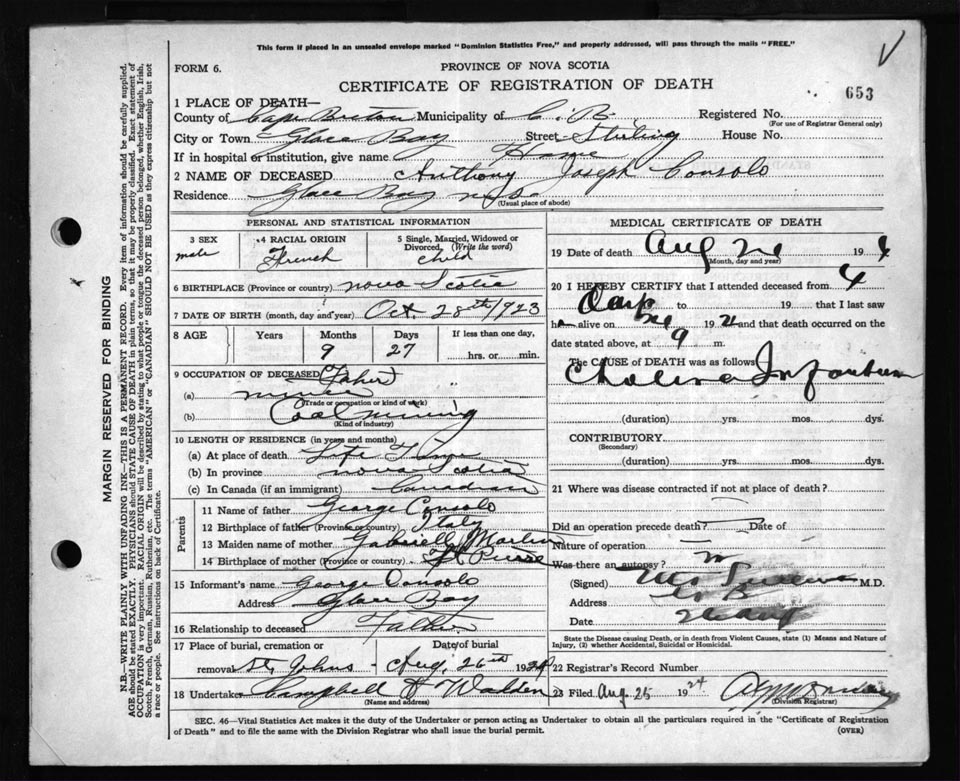 This form if placed in an unsealed envelope marked "Dominion Statistics Free," and properly addressed, will pass through the mails "FREE."
FORM 6.
PROVINCE OF NOVA SCOTIA
CERTIFICATE OF REGISTRATION OF DEATH
653
1 PLACE OF DEATH—
County of Cape Breton Municipality of C. B. Registered No.
(For use of Registrar General only)
City or Town Glace Bay Street Sterling House No.
If in hospital or institution, give name Home
2 NAME OF DECEASED Anthony Joseph Consolo
Residence Glace Bay N.S.
(Usual place of abode)
PERSONAL AND STATISTICAL INFORMATION
3 SEX 4 RACIAL ORIGIN 5 Single, Married, Widowed or Divorced, (Write the word)
male French child
6 BIRTHPLACE (Province or country) Nova Scotia
7 DATE OF BIRTH (month, day and year) Oct 28th 1923
8 AGE Years Months Days If less than one day,
9 27 hrs. or min.
9 OCCUPATION OF DECEASED Father
(a) miner
(Trade or occupation or kind of work)
(b) Coal mining
(Kind of industry)
10 LENGTH OF RESIDENCE (in years and months)
(a) At place of death Life Time
(b) In province Nova Scotia
(c) In Canada (if an immigrant) Canadian
Parents
11 Name of father George Consolo
12 Birthplace of father (Province or country) Italy
13 Maiden name of mother Gabrielle
14 Birthplace of mother (Province or country) St Pierre
15 Informant's name George Consolo
Address Glace Bay
16 Relationship to deceased Father
17 Place of burial, cremation or removal Date of burial
St. Johns Aug. 26th 1924
18 Undertaker Campbell & Walden
(Name and address)
MEDICAL CERTIFICATE OF DEATH
19 Date of death Aug 24 192 4
(Month, day and year)
20 I HEREBY CERTIFY that I attended deceased from
to 19 that I last saw
h alive on 192 and that death occurred on the
date stated above, at 9 m.
The CAUSE of DEATH was as follows
Cholera Infantum
(duration) yrs. mos. dys.
CONTRIBUTORY
(Secondary)
(duration) yrs. mos. dys.
21 Where was disease contracted if not at place of death?
Did an operation precede death? Date of
Nature of operation
Was there an autopsy?
(Signed) M.D.
Address
Date
State the Disease causing Death, or in death from Violent Causes, state (1) Means and Nature of Injury, (2) whether Accidental, Suicidal or Homicidal.
22 Registrar's Record Number
23 Filed Aug. 25 1924
(Division Registrar)
SEC. 46—Vital Statistics Act makes it the duty of the Undertaker or person acting as Undertaker to obtain all the particulars required in the "Certificate of Registration
of Death" and to file the same with the Division Registrar who shall issue the burial permit. (OVER)
MARGIN RESERVED FOR BINDING
N.B.—WRITE PLAINLY WITH UNFADING INK—THIS IS A PERMANENT RECORD. Every item of information should be carefully supplied.
AGE should be stated EXACTLY. PHYSICIANS should STATE CAUSE OF DEATH in plain terms, so that it may be properly classified. Exact statement of
OCCUPATION is very important. RACIAL ORIGIN will be described by stating to what people or tongue the deceased person belonged, whether English, Irish,
Scotch, French, German, Russian, Ruthenian, etc. The terms "AMERICAN" or "CANADIAN" SHOULD NOT BE USED as they express citizenship but not
a race or people. See instructions on back of Certificate.